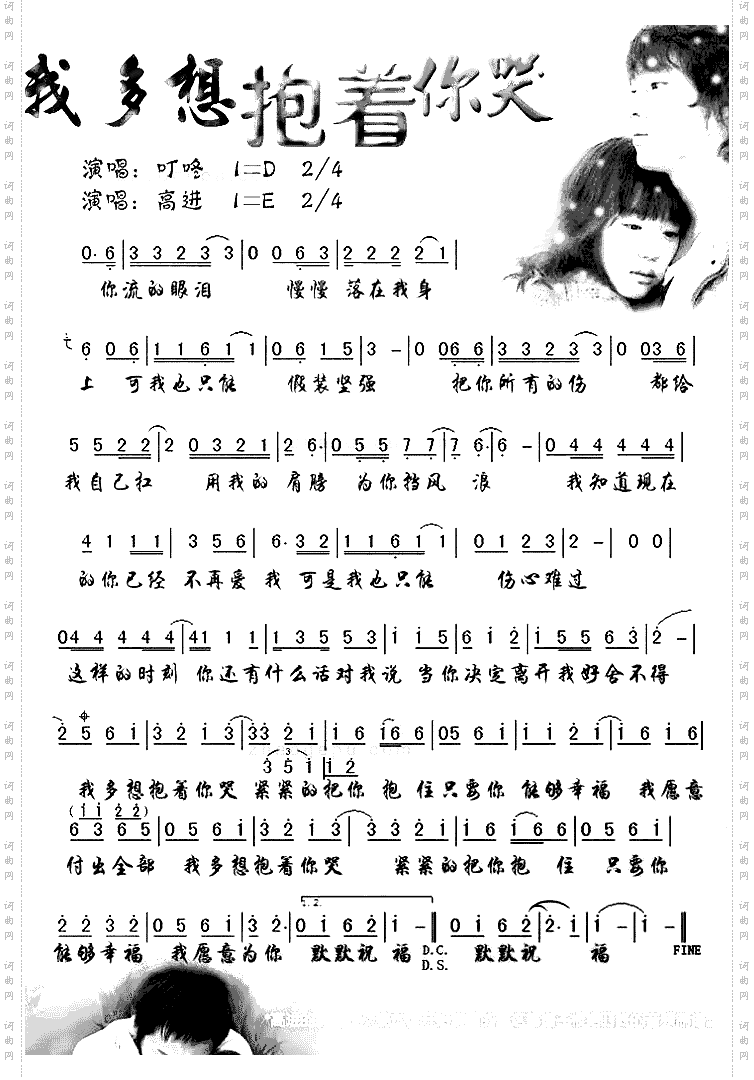 我多想抱着你哭
演唱：叮咚 1=D 2/4
演唱：高进 1=E 2/4
0·6|3 3 2 3 3|0 0 6 3|2 2 2 2 1|
你流的眼泪 慢慢 落在我身
6 0 6|1 1 6 1 1|0 6 1 5|3 -|0 0 6 6|3 3 3 2 3 3|0 0 3 6|
上 可我也只能 假装坚强 把你所有的伤 都给
5 5 2 2|2 0 3 2 1|2 6·|0 5 5 7 7|7 6·|6 -|0 4 4 4 4 4|
我自己扛 用我的肩膀 为你挡风 浪 我知道现在
4 1 1 1|3 5 6|6· 3 2|1 1 6 1 1|0 1 2 3|2 -|0 0|
的你已经 不再爱 我 可是我也只能 伤心难过
0 4 4 4 4 4|4 1 1 1|1 3 5 5 3|1 1 5|6 1 2|1 5 5 6 3|2 -|
这样的时刻 你还有什么话对我说 当你决定离开我好舍不得
2 5 6 1|3 2 1 3|3 3 2 1|1 6 1 6 6|0 5 6 1|1 1 2 1|1 6 1 6|
3 5 1|1 2
我多想抱着你哭 紧紧的把你 抱 住只要你 能够幸福 我愿意
(1 1 2 2)
6 3 6 5|0 5 6 1|3 2 1 3|3 3 2 1|1 6 1 6 6|0 5 6 1|
付出全部 我多想抱着你哭 紧紧的把你抱 住 只要你
1.2.
2 2 3 2|0 5 6 1|3 2·|0 1 6 2|1 -‖0 1 6 2|2· 1|1 -|1 -‖
能够幸福 我愿意为你 默默祝 福 D.C. 默默祝 福 FINE
D.S.
词曲网